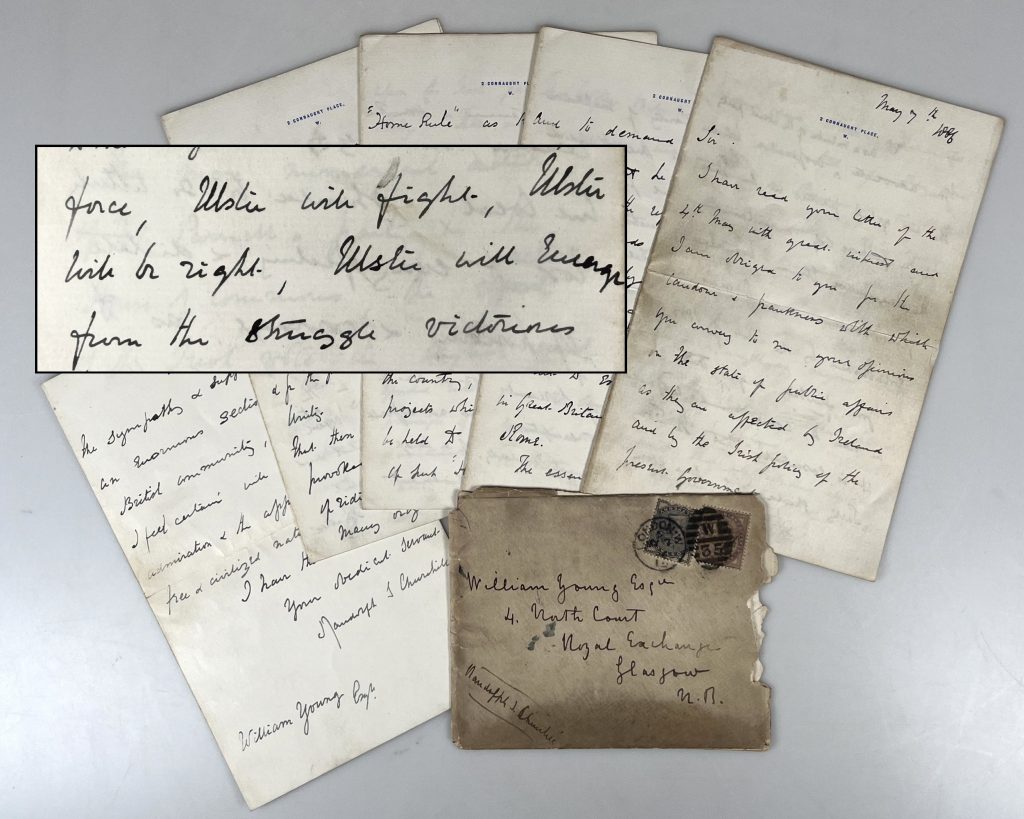 2 CONNAUGHT PLACE,
W.
2 CONNAUGHT PL
W.
"Home Rule" as
2 CONNAUGHT
W.
and to demand
2 CONNAUGHT PLACE,
W.
May 7th
1886
Sir.
I have read your letter of the
4th May with great interest and
I am obliged to you for the
candour & frankness with which
you convey to me your opinions
on the state of public affairs
as they are affected by Ireland
and by the Irish policy of the
present Governme
force, Ulster will fight, Ulster
will be right, Ulster will Emerge
from the struggle victorious
the sympathy & supp
an Enormous section
British community,
I feel certain will
admiration & the app
free & civilized nati
I have th
Your obedient Servant
Randolph S Churchill
William Young Esqr.
& for the
Unity.
That then
provoke
of ridi
Many
the country,
projects whi
be held
of such
in Great Britain
Rome.
The essen
LONDON.W
W
35
William Young Esqre
4. North Court
Royal Exchange
Glasgow
N.B.
Randolph S. Churchill